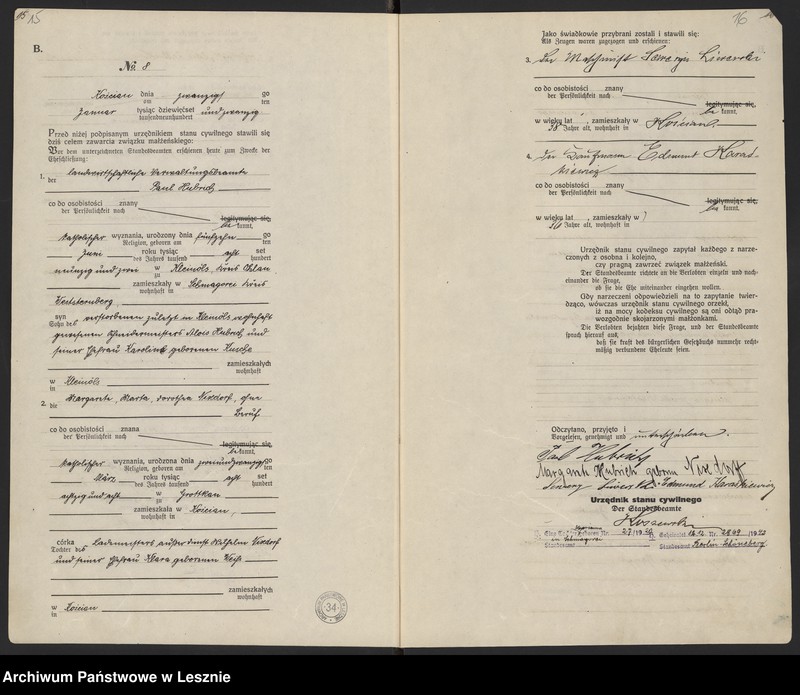 15
B.
№ 8
Kościan dnia zwanzigsten go
am ten
Januar tysiąc dziewięćset und zwanzig
tausendneunhundert
Przed niżej podpisanym urzędnikiem stanu cywilnego stawili się
dziś celem zawarcia związku małżeńskiego:
Vor dem unterzeichneten Standesbeamten erschienen heute zum Zwecke der
Eheschließung:
1. der landwirtschaftliche Verwaltungsbeamte
Paul Hubrich
co do osobistości znany
der Persönlichkeit nach
legitymując się,
kannt,
katholischer wyznania, urodzony dnia fünfzehn go
Religion, geboren am ten
Juni roku tysiąc acht set
des Jahres tausend hundert
neunzig und zwei w Klemöls, Kreis Ohlau
zu
zamieszkały w Schmagorei Kreis
wohnhaft in
Weststernberg,
syn verstorbenen zuletzt in Klemöls wohnhaft
Sohn des
gewesenen Schneidermeisters Alois Hubrich und
seiner Ehefrau Karoline geborenen Kusche
zamieszkałych
wohnhaft
w Klemöls
in
2. die Margarete, Marta, Dorothea Nixdorf, ohne
Beruf
co do osobistości znany
der Persönlichkeit nach
legitymując się,
kannt,
katholischer wyznania, urodzona dnia zweiundzwanzig go
Religion, geboren am ten
März roku tysiąc acht set
des Jahres tausend hundert
achtzig und acht w Grottkau
zu
zamieszkała w Kościan,
wohnhaft in
córka Lademeisters außer Dienst Wilhelm Nixdorf
Tochter des
und seiner Ehefrau Klara geborenen Weiß
zamieszkałych
wohnhaft
w Kościan
in
34
16
Jako świadkowie przybrani zostali i stawili się:
Als Zeugen waren zugezogen und erschienen:
3. der Maschinist
co do osobistości znany
der Persönlichkeit nach
legitymując się,
kannt,
w wieku lat , zamieszkały w Kościan
38 Jahre alt, wohnhaft in
4. der Kaufmann Edmund Haras-
kiewicz
co do osobistości znany
der Persönlichkeit nach
legitymując się,
kannt,
w wieku lat , zamieszkały w
Jahre alt, wohnhaft in
Urzędnik stanu cywilnego zapytał każdego z narze-
czonych z osobna i kolejno,
czy pragną zawrzeć związek małżeński.
Der Standesbeamte richtete an die Verlobten einzeln und nach-
einander die Frage,
ob sie die Ehe miteinander eingehen wollen.
Gdy narzeczeni odpowiedzieli na to zapytanie twier-
dząco, wówczas urzędnik stanu cywilnego orzekł,
iż na mocy kodeksu cywilnego są oni odtąd pra-
wozgodnie skojarzonymi małżonkami.
Die Verlobten bejahten diese Frage, und der Standesbeamte
sprach hierauf aus,
daß sie kraft des bürgerlichen Gesetzbuchs nunmehr recht-
mäßig verbundene Eheleute seien.
Odczytano, przyjęto i
Vorgelesen, genehmigt und unterschrieben.
Paul Hubrich
Margarete Hubrich geborene Nixdorff
Edmund Haraskiewicz
Urzędnik stanu cywilnego
Der Standesbeamte
Standesamt Berlin-Schöneberg
Archiwum Państwowe w Lesznie